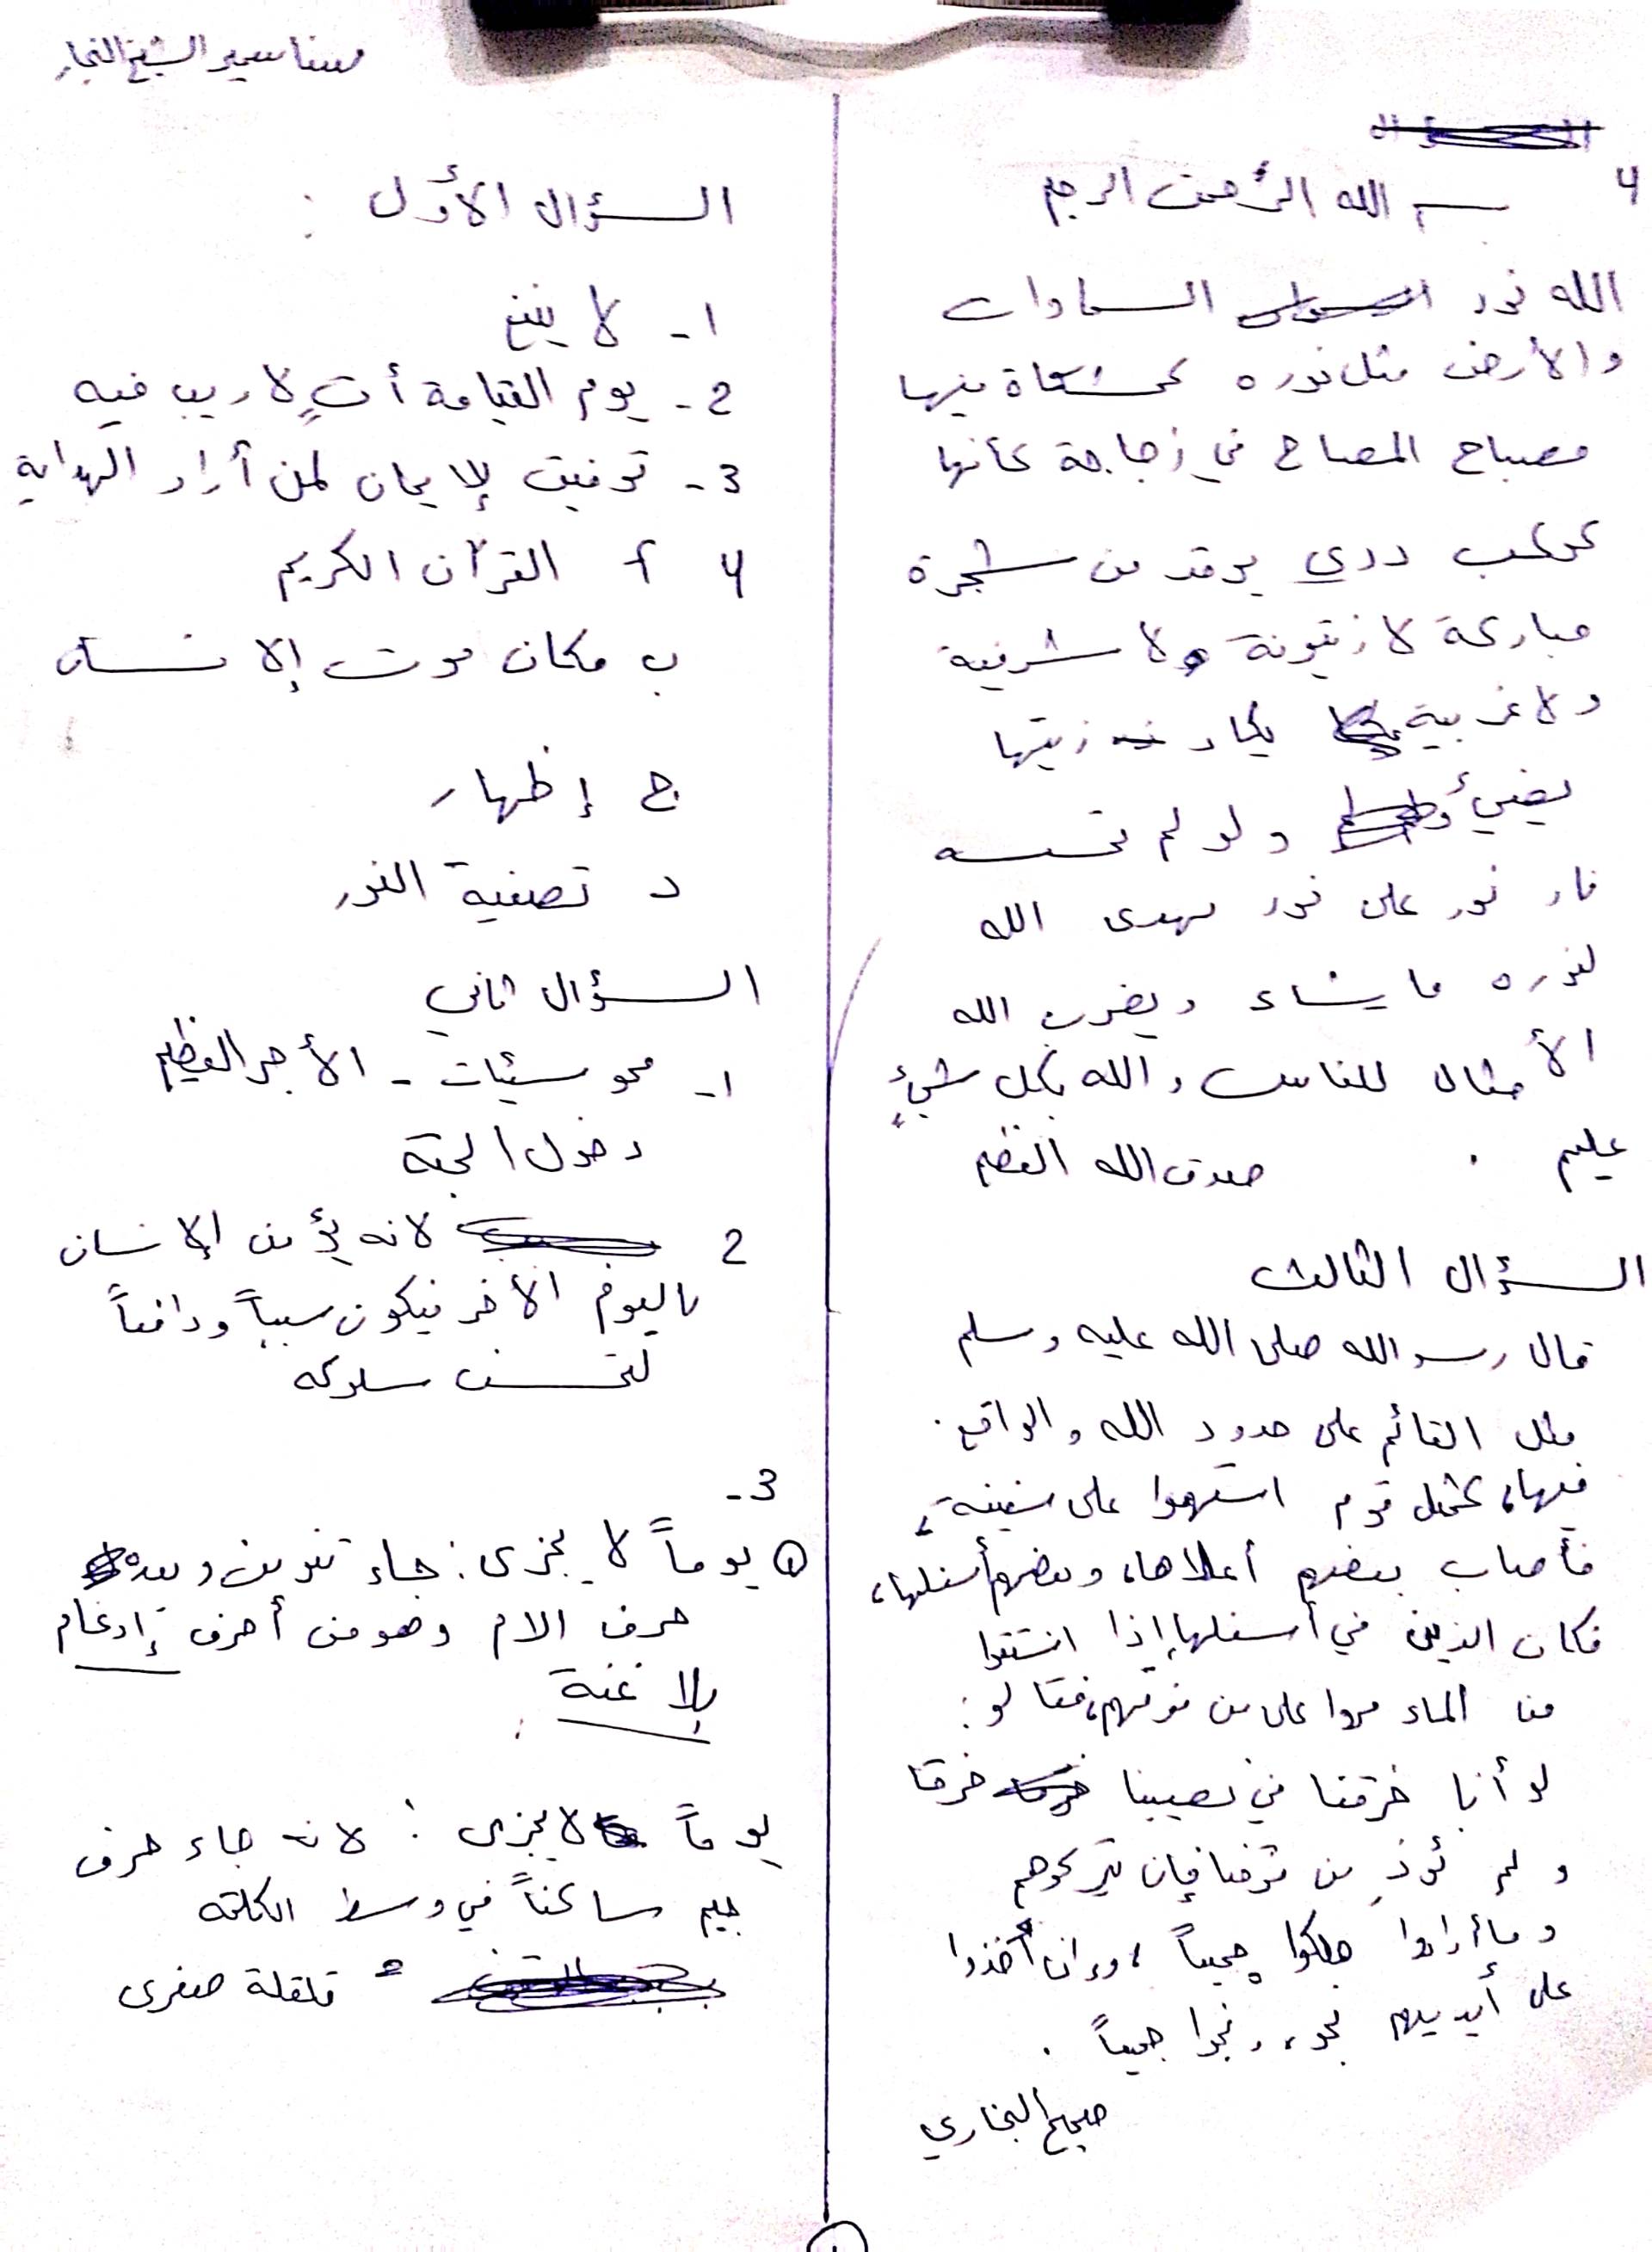 السؤال الأول :
1- لا يغني
2- يوم القيامة أتٍ لا ريب فيه
3- توفيق لإيمان لمن أراد الهداية
4 أ القرآن الكريم
ب مكان موت إلانسان
ج إظهار
د تصفية النور
السؤال ثاني
1- محو سيئات - الأجر العظيم
دخول الجنة
2 لانه يؤمن إلانسان
باليوم الأخر فيكون سبباً ودافعاً
لتحسن سلوكه
3-
① يوماً لا يجزى : جاء تنوين وبعده
حرف الام وهو من أحرف إدغام
بلا غنة :
يوماً لايجزى : لانه جاء حرف
جيم ساكناً في وسط الكلمه
قلقلة صغرى
4 بسم الله الرَّحمن الرحيم
الله نور السماوات
والأرض مثل نوره كمشكاة فيها
مصباح المصباح في زجاجة كأنها
كوكب دري يوقد من شجرة
مباركة لا زيتونة ولا شرقية
ولا غربية يكاد زيتها
يضيئ ولو لم تمسسه
نار نور على نور يهدى الله
لنوره ما يشاء ويضرب الله
الأمثال للناس والله بكل شيءٍ
عليم . صدق الله العظيم
السؤال الثالث
قال رسو الله صلى الله عليه وسلم
مثل القائم على حدود الله والواقع
فيها، كمثل قوم استهموا على سفينة،
فأصاب بعضهم أعلاها، وبعضهم أسفلها،
فكان الذين في أسفلها إذا استقوا
من الماء مروا على من فوقهم، فقالو :
لو أنا خرقنا في نصيبنا خرقا
ولم نُؤذِ من فوقنا فإن يتركوهم
وما أرادوا هلكوا جميعاً ، وإن أخذوا
على أيديهم نجو، ونجوا جميعاً .
صحيح البخاري